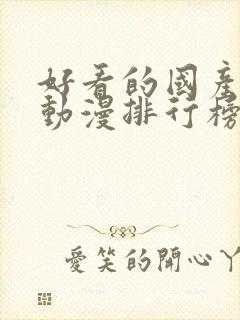 好看的國產
動漫排行榜
愛笑的開心丫